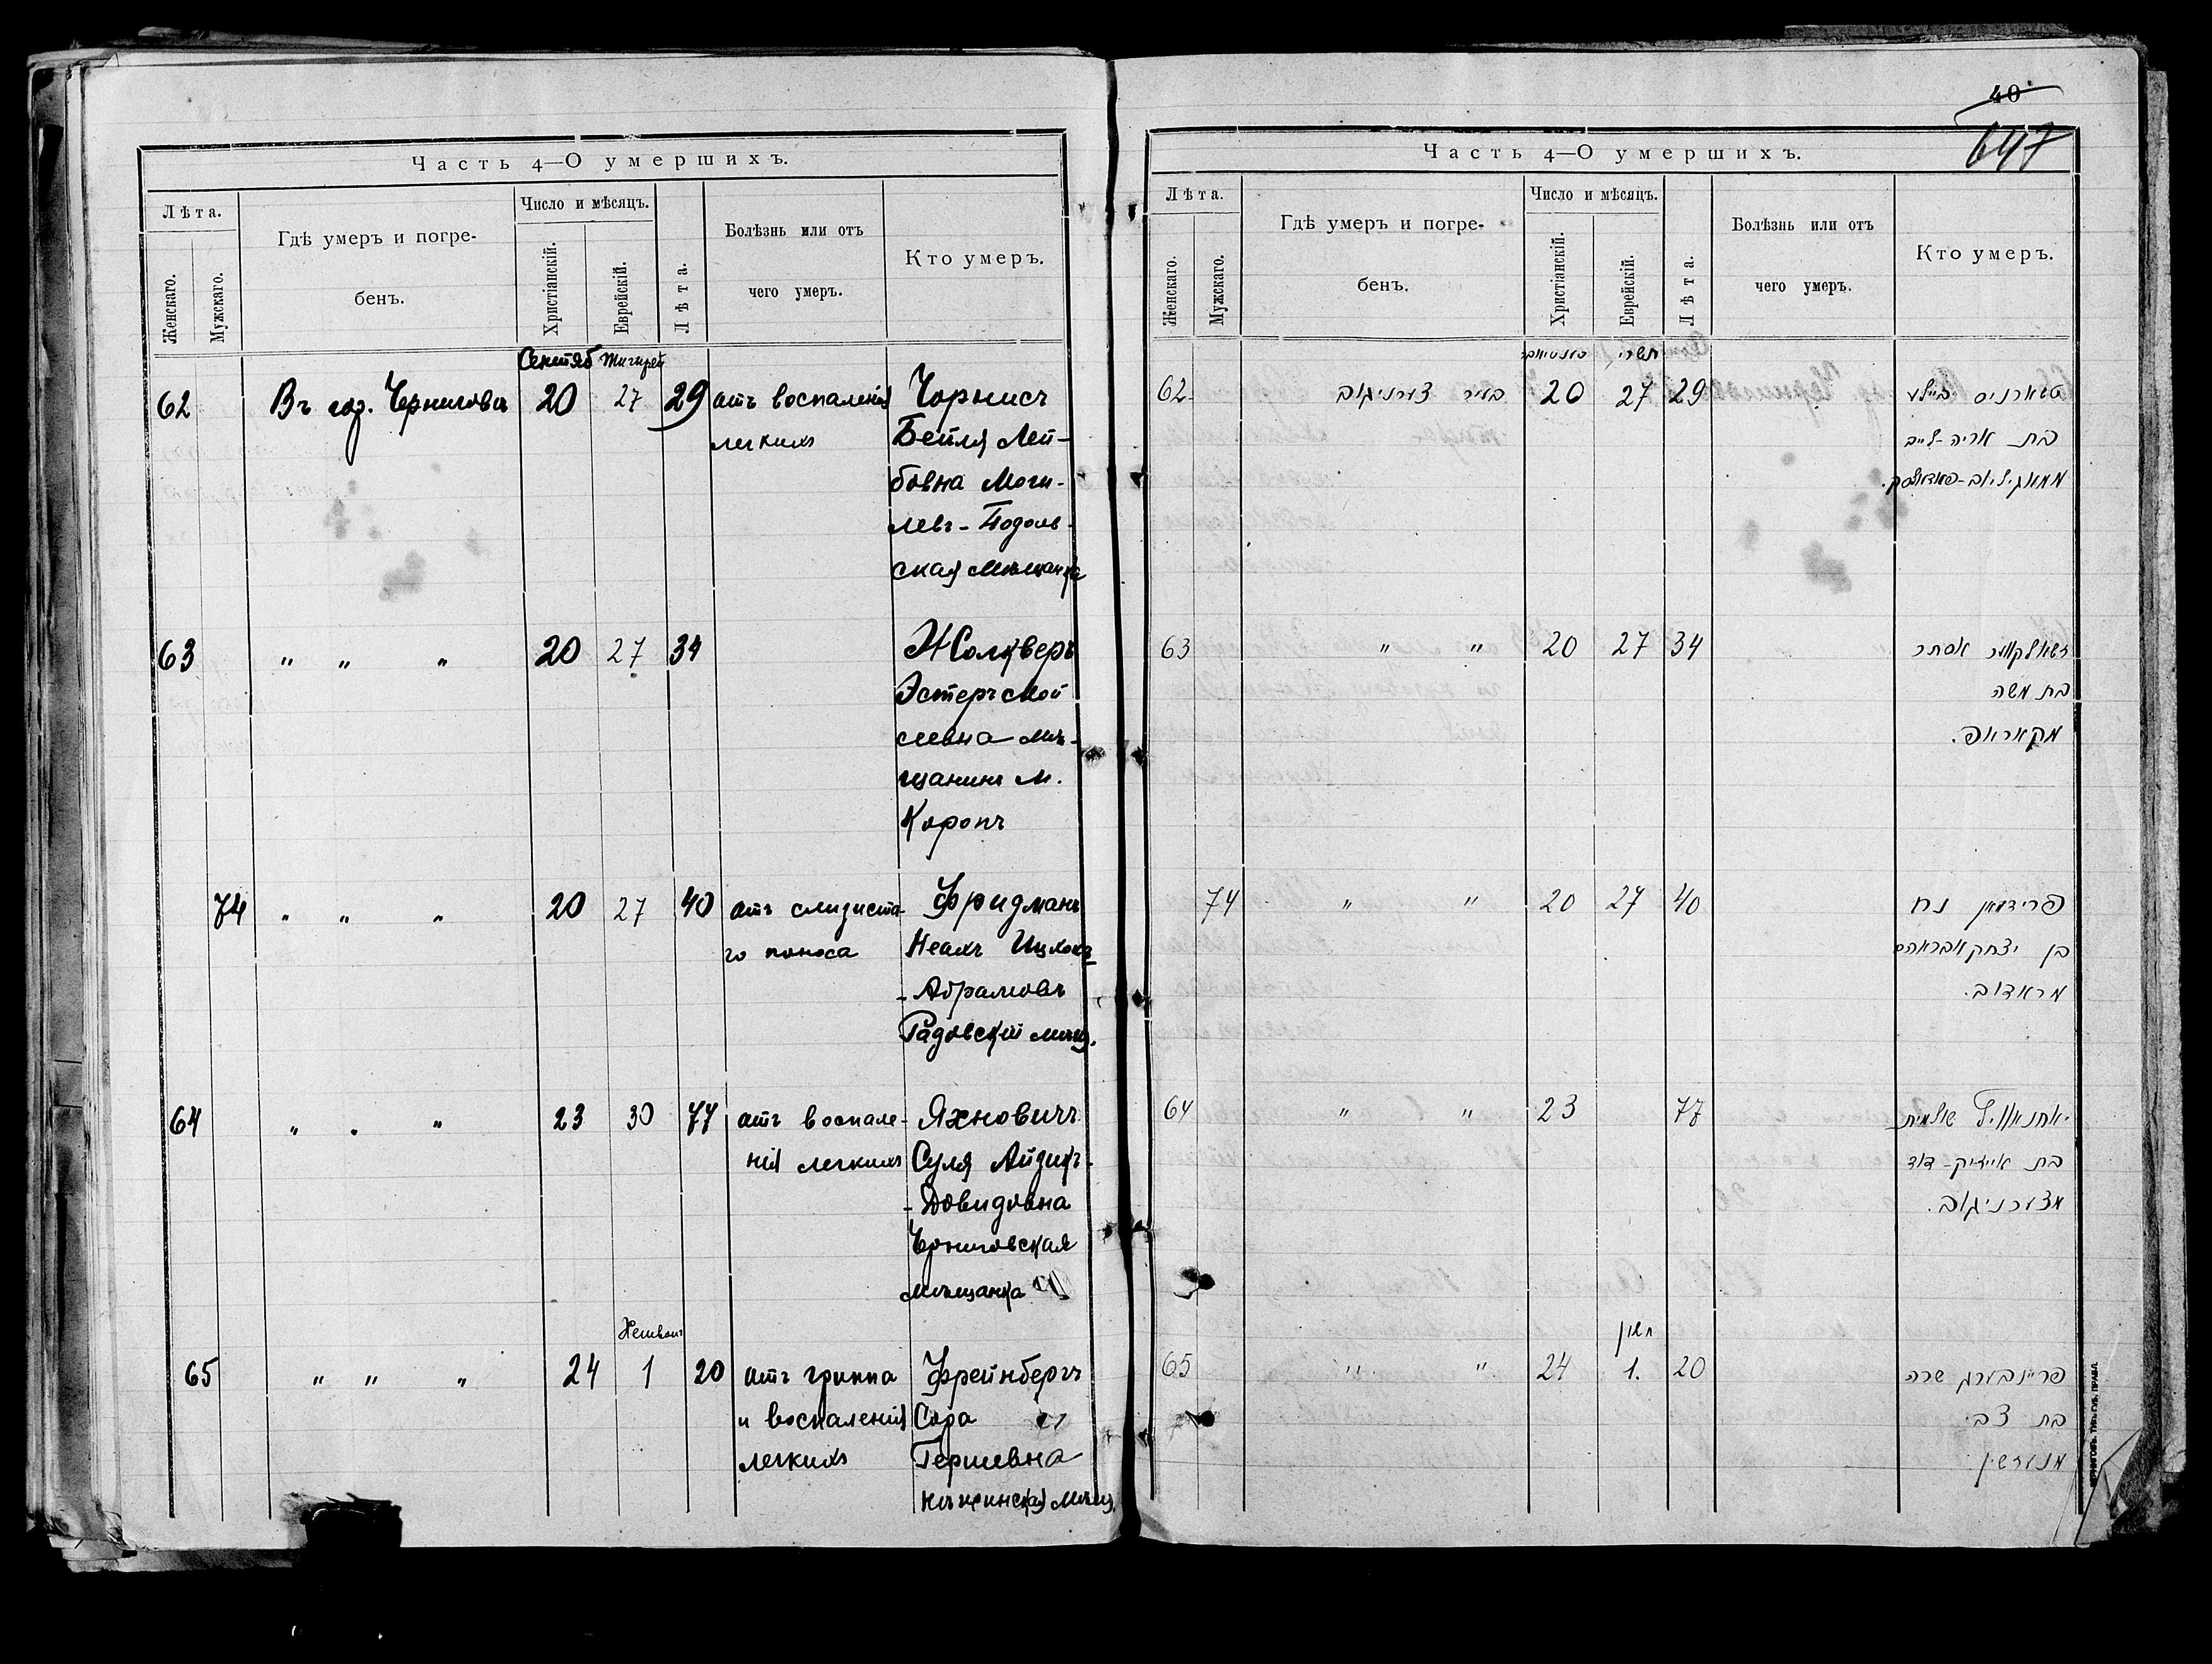 Часть 4—О умершихъ.
Лѣта.
Женскаго.
Мужскаго.
Гдѣ умеръ и погре-
бенъ.
Число и мѣсяцъ.
Христіанскій.
Еврейскій.
Лѣта.
Болѣзнь или отъ
чего умеръ.
Кто умеръ.
Сентяб
62 Въ гор. Черниговѣ 20 27 29 отъ воспаленія Чорнисъ
легкихъ Бейля Лей-
бовна Моги-
левъ-Подоль-
ская мѣщанка
63 " " " 20 27 34 Жолкверъ
Эстеръ Мой
сеевна мѣ-
щанинъ м.
Коропъ
74 " " " 20 27 40 отъ слизиста- Фридманъ
го поноса Ноахъ Ицхокъ
-Абрамовъ
Радовскій мѣщ.
64 " " " 23 30 77 отъ воспале- Яхновичъ
нія легкихъ Суля Айзикъ-
-Довидовна
Черниговская
мѣщанка
Хешвонъ
65 " " " 24 1 20 отъ гриппа Фрейнбергъ
и воспаленія Сора
легкихъ Гершевна
Нѣжинская мѣщ.
40
647
Часть 4—О умершихъ.
Лѣта.
Женскаго.
Мужскаго.
Гдѣ умеръ и погре-
бенъ.
Число и мѣсяцъ.
Христіанскій.
Еврейскій.
Лѣта.
Болѣзнь или отъ
чего умеръ.
Кто умеръ.
תשרי
62 בעיר צערניגוב 20 27 29 טשארניס ביילע
בת אריה-לייב
ממאגיליוב-פאדאלסק.
63 " " 20 27 34 זשאלקווער אסתר
בת משה
מקאראפ.
74 " " 20 27 40 פרידמאן נח
בן יצחק אברהם
מראדוב.
64 " " 23 77 יאחנאוויץ שולמית
בת אייזיק-דוד
מצערניגוב.
חשון
65 " " 24 1. 20 פריינבערג שרה
בת צבי
מנעזשין